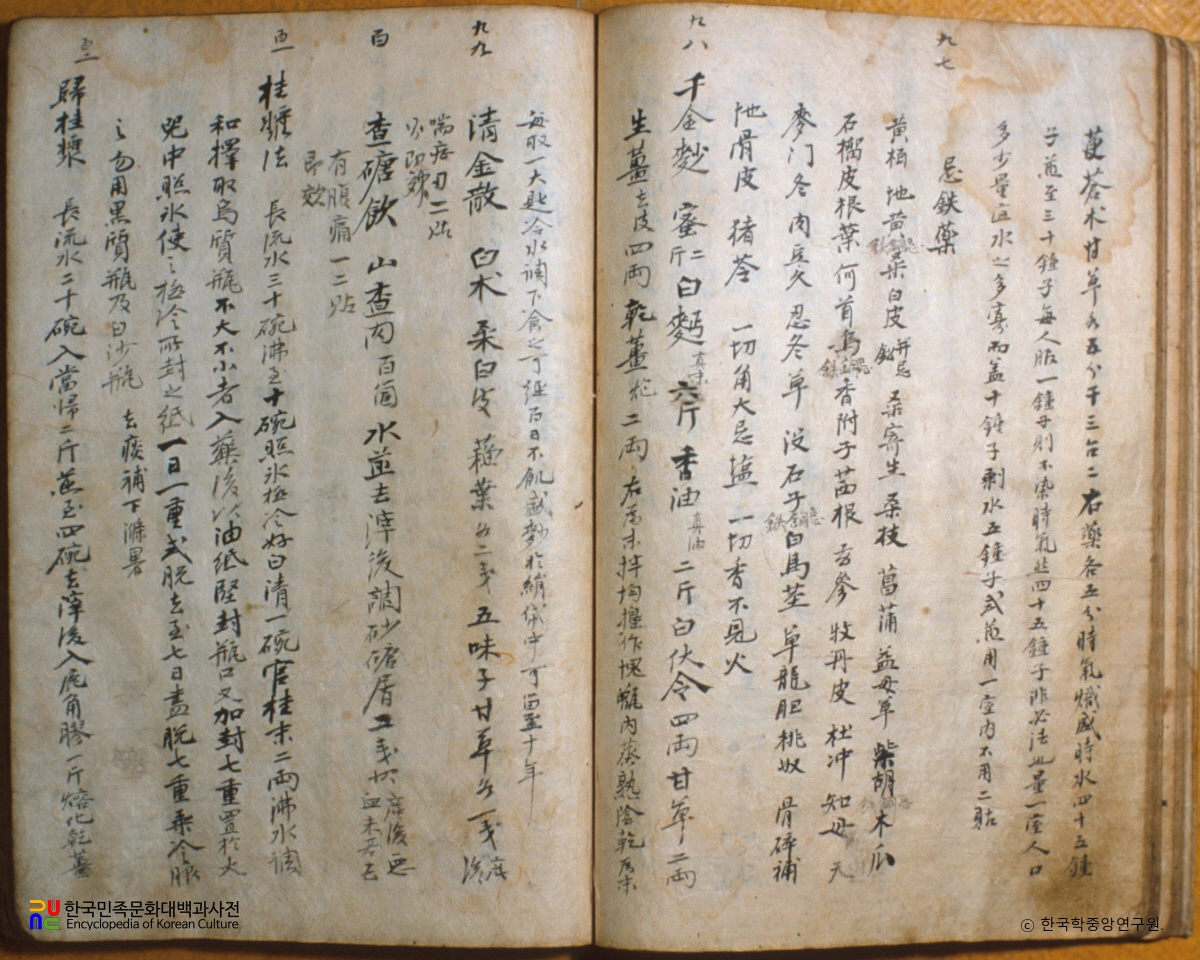 蒼朮甘草各五分干三召二右藥各五分時氣熾盛時水四十五鍾
子煎至三十鍾子每人服一鍾子則不染時氣些四十五鍾子非必法也量一室人口
多少量宜水之多寡而盖十鍾子剩水五鍾子式煎用一室內不用二貼
九七
忌鉄藥
黃栢 地黃 桑白皮 並忌鉛 桑寄生 桑枝 菖蒲 益母草 柴胡 木瓜
石榴皮根葉 何首烏 香附子 茜根 玄參 牧丹皮 杜冲 知母 天
麥门冬 肉豆久 忍冬草 沒石子 白馬莖 草龍胆 桃奴 骨碎補
地骨皮 猪苓 一切角大忌塩 一切香不見火
九八
千金麨 蜜二斤 白麪 真末 六斤 香油 真油 二斤 白伏令四兩 甘草二兩
生薑去皮四兩 乾薑炮二兩 右爲末拌均握作塊甑內蒸熟陰乾爲末
每取一大匙冷水調下飡之可経百日不飢盛麨於絹袋中可留至十年
九九
清金散 白朮 柔白皮 蘓葉各二戔 五味子 甘草各一戔
喘症力二貼
查磄飮 山查肉百箇水煎去滓後調砂磄屑
有腹痛一二貼
即效
桂漿法 長流水三十碗沸至十碗照氷極冷好白清一碗官桂末二兩沸水調
和擇取烏質瓶不大不小者入藥後以油紙堅封瓶口又加封七重置於大
冷所封之紙一日一重式脫去至七日盡脫七重乘冷服
之勿用黑質瓶及白沙瓶 去痰補下滌暑
歸桂漿 長流水二十碗入當帰二斤煎至四碗去滓後入鹿角膠一斤熔化乾薑
한국민족문화대백과사전
Encyclopedia of Korean Culture
ⓒ 한국학중앙연구원.